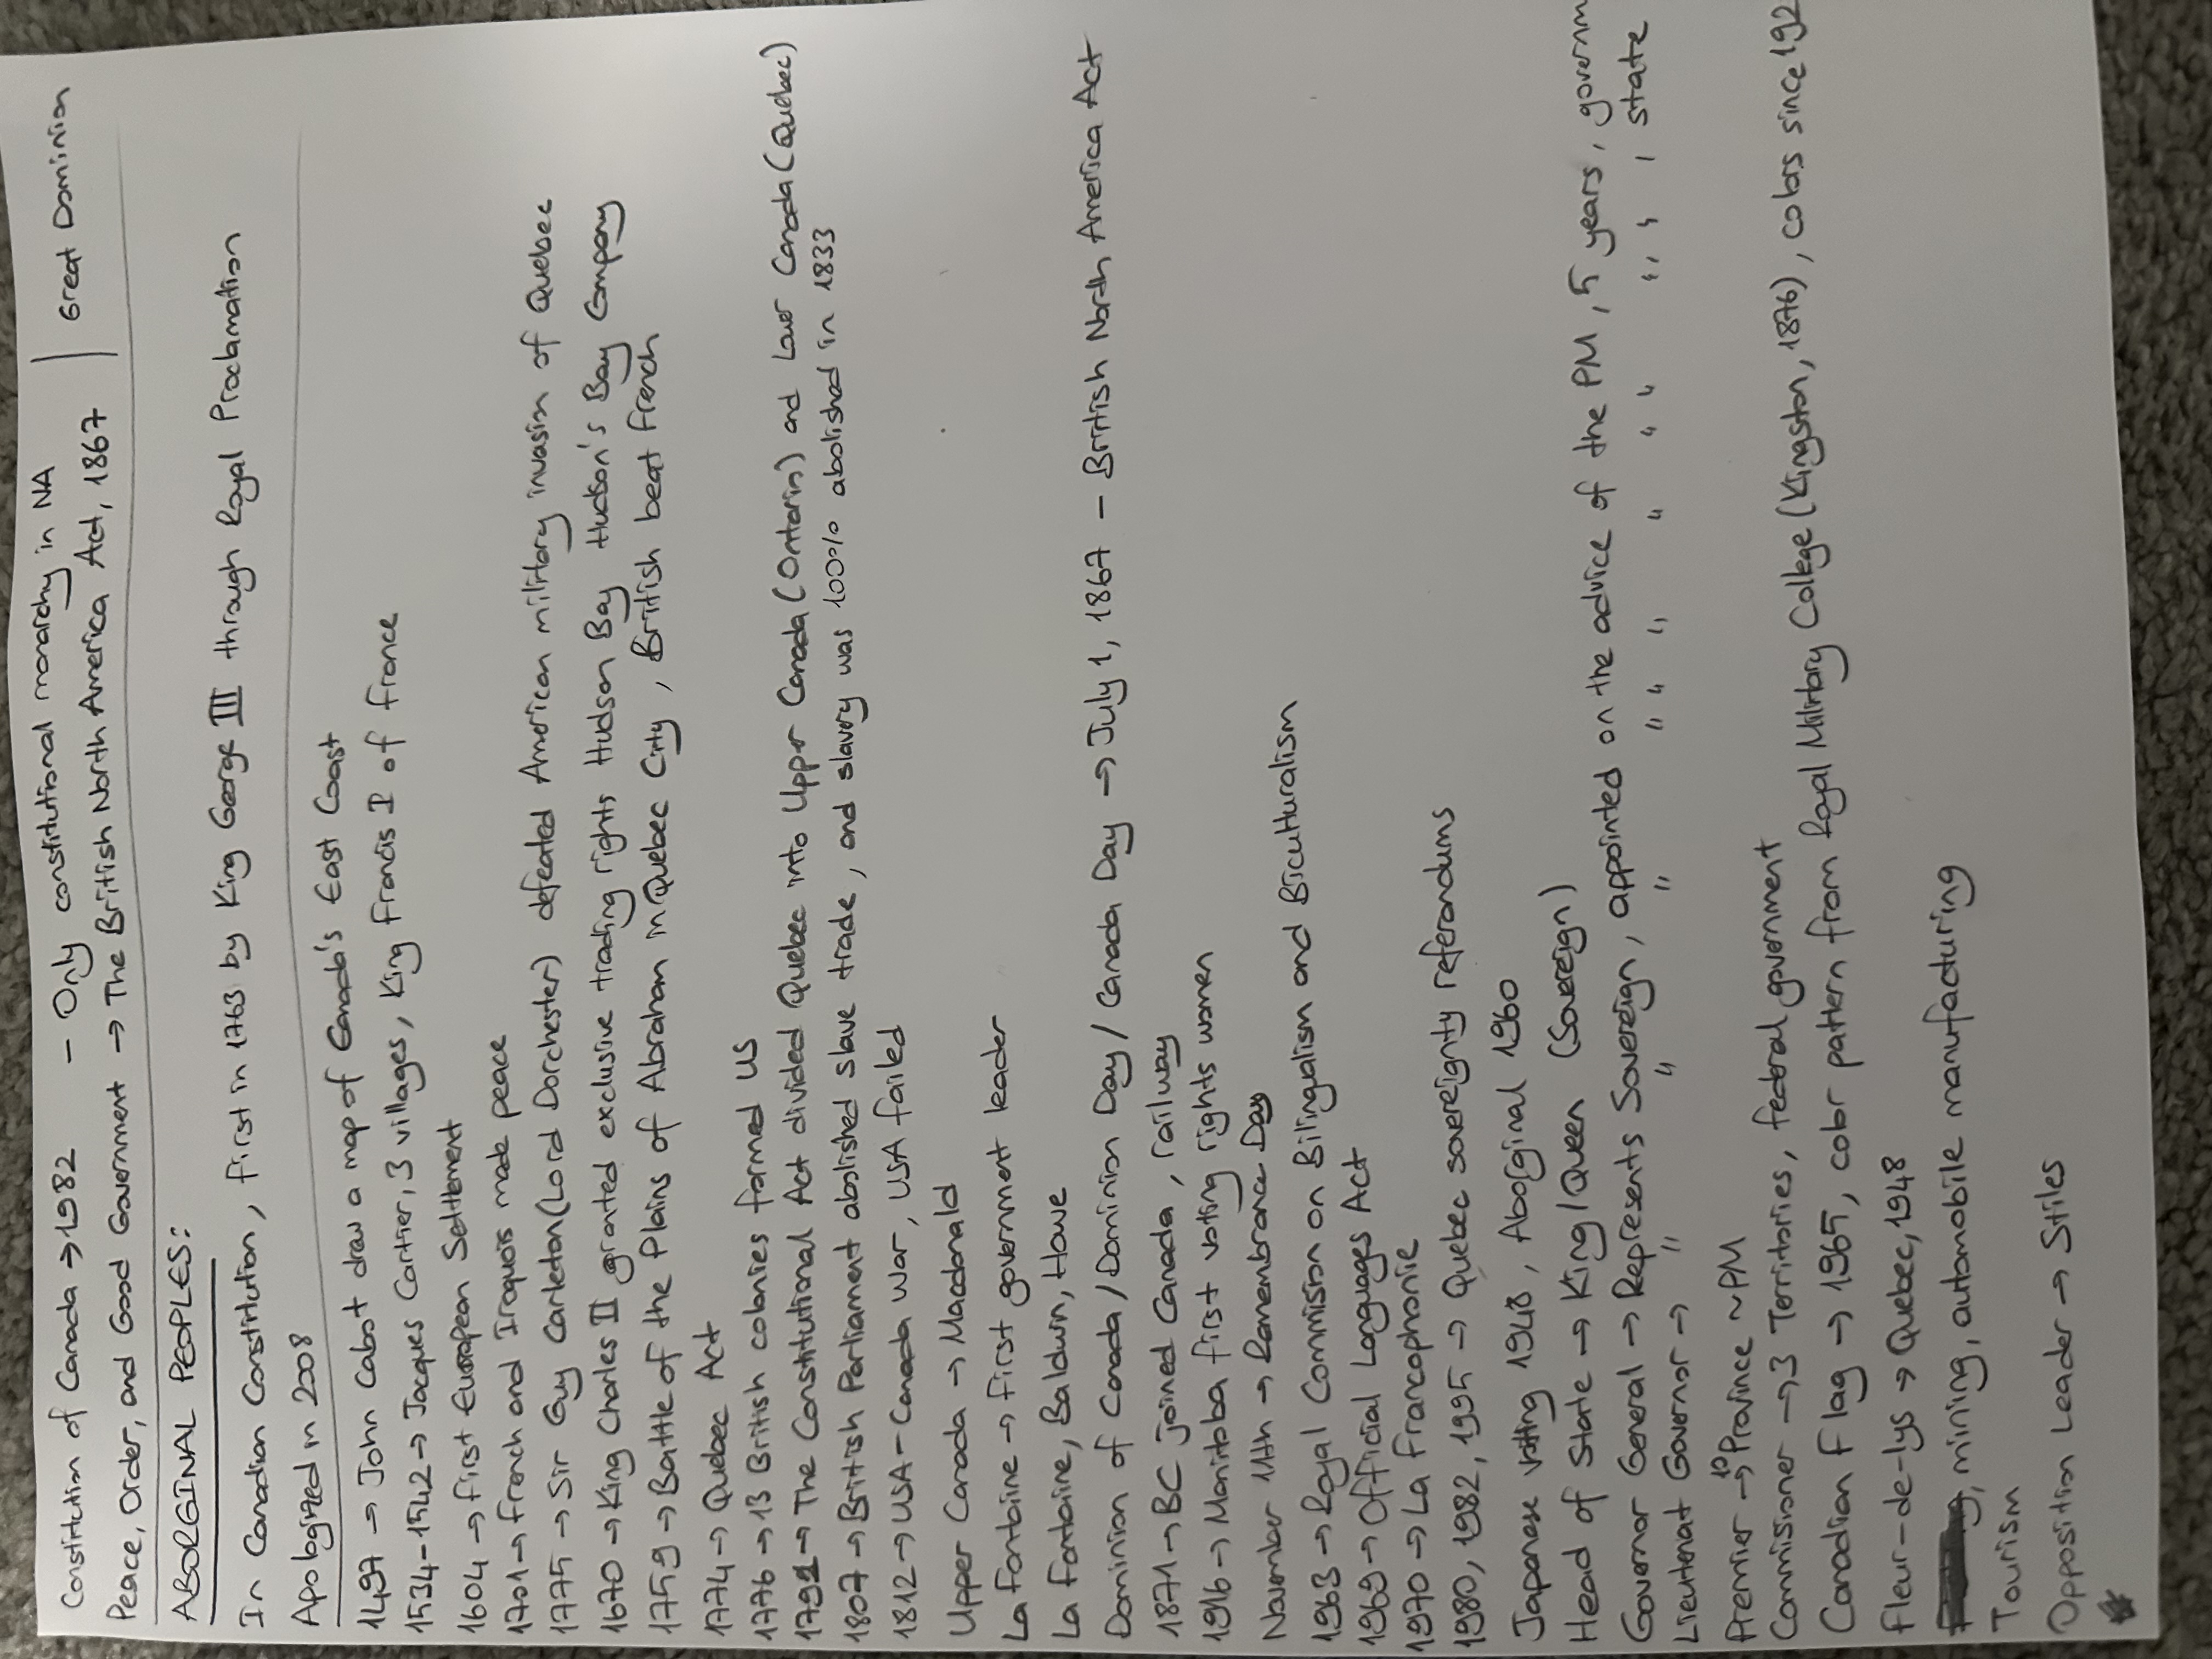 Constitution of Canada → 1982 – Only constitutional monarchy in NA | Great Dominion
Peace, Order, and Good Government → The British North America Act, 1867
ABORGINAL PEOPLES:
In Canadian Constitution, first in 1763 by King George III through Royal Proclamation
Apologized in 2008
1497 → John Cabot draw a map of Canada's East Coast
1534-1542 → Jacques Cartier, 3 villages, King Francis I of France
1604 → First European Settlement
1701 → French and Iroquois made peace
1775 → Sir Guy Carleton (Lord Dorchester) defeated American military invasion of Quebec
1670 → King Charles II granted exclusive trading rights Hudson Bay Hudson's Bay Company
1759 → Battle of the Plains of Abraham in Quebec City, British beat French
1774 → Quebec Act
1776 → 13 British colonies formed US
1791 → The Constitutional Act divided Quebec into Upper Canada (Ontario) and Lower Canada (Quebec)
1807 → British Parliament abolished slave trade, and slavery was 100% abolished in 1833
1812 → USA-Canada War, USA failed
Upper Canada → Macdonald
La Fontaine → First government leader
La Fontaine, Baldwin, Howe
Dominion of Canada / Dominion Day / Canada Day → July 1, 1867 – British North America Act
1871 → BC joined Canada, railway
1916 → Manitoba first voting rights women
November 11th → Remembrance Day
1963 → Royal Commision on Bilingualism and Biculturalism
1969 → Official Languages Act
1970 → La Francophonie
1980, 1982, 1995 → Quebec sovereignty referendums
Japanese voting 1948, Aborginal 1960
Head of State → King/Queen (Sovereign)
Governor General → Represents Sovereign, appointed on the advice of the PM, 5 years, governm
Lieutenat Governor → " " " " " " " " " " , state
Premier → 10 Province ~PM
Commissioner → 3 Territories, federal government
Canadian Flag → 1965, color pattern from Royal Military College (Kingston, 1876), colors since 192
Fleur-de-lys → Quebec, 1948
, mining, automobile manufacturing
Tourism
Opposition Leader → Stiles